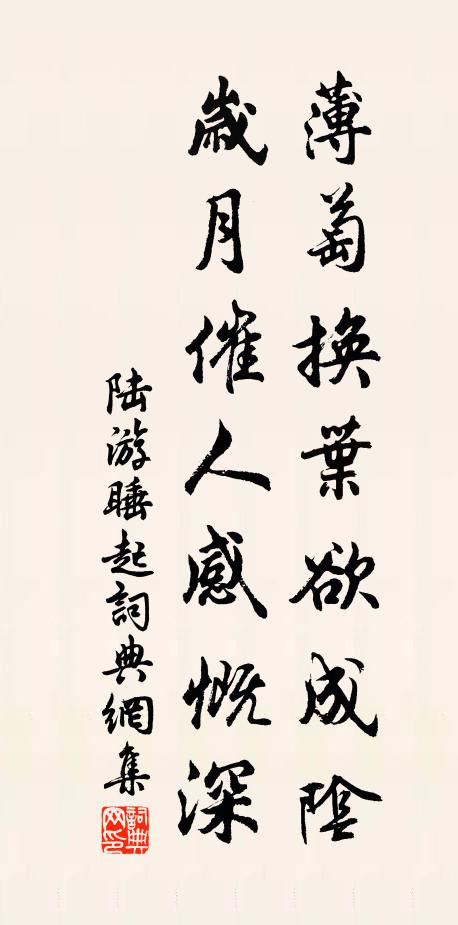 薄萄換葉欲成陰
歲月催人感慨深
陸游睡起詞典網集
詞典
网印